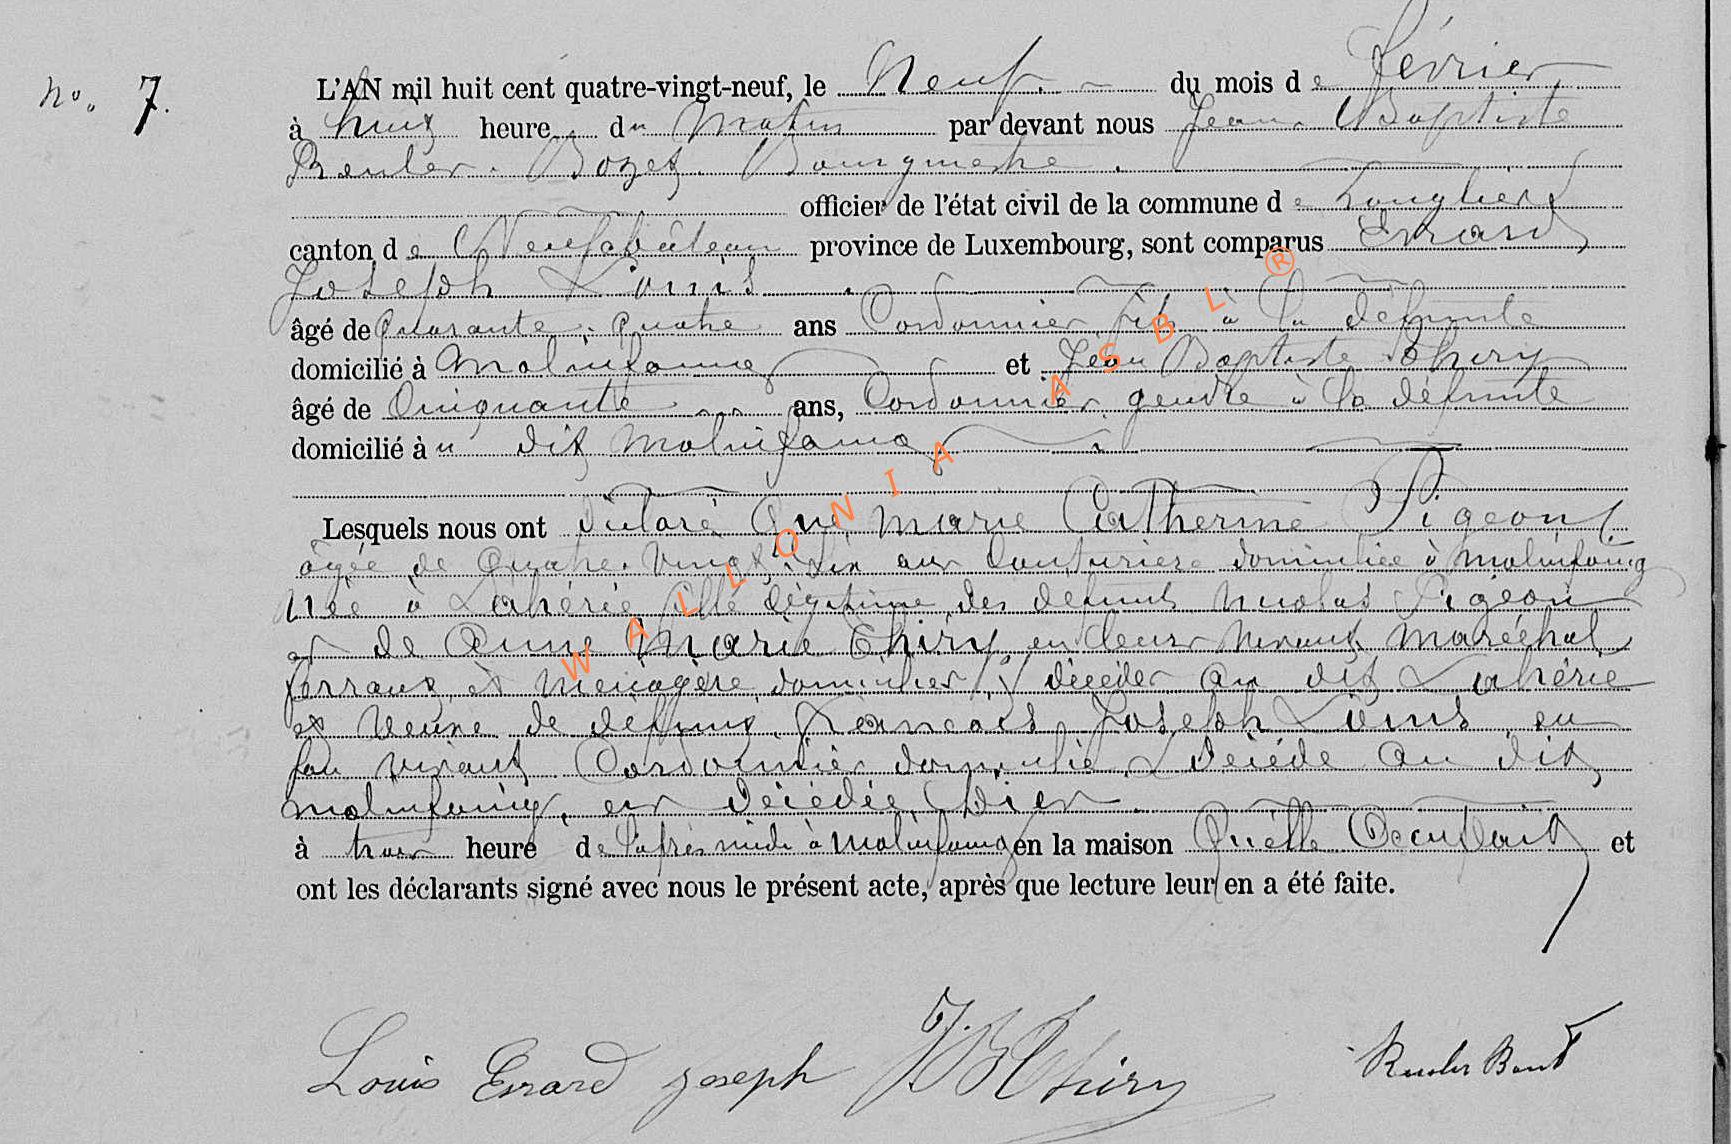 No. 7.
L'AN mil huit cent quatre-vingt-neuf, le Neuf. du mois de Février
à huit heure du Matin par devant nous Jean Baptiste
Reuler. Bozet. Bourgmestre.
officier de l'état civil de la commune de Longlier
canton de Neufchâteau province de Luxembourg, sont comparus Errard
Joseph Louis
âgé de Quarante. quatre ans Cordonnier fils à la défunte
domicilié à Molinfaing et Jean Baptiste Thiry
âgé de Cinquante ans, Cordonnier gendre à la défunte
domicilié à u dit Molinfaing
Lesquels nous ont déclaré Que Marie Catherine Pigeon
âgée de Quatre. Vingt. ans Couturière domiciliée à Molinfaing
Née à Lahérie fille légitime des défunts Nicolas Pigeon
et de Anne Marie Thiry en leurs vivants Maréchal
ferrant et Ménagère domiciliés décédés au dit Lahérie
et Veuve de défunt Francois Joseph Louis en
son vivant Cordonnier domicilié décédé au dit
Molinfaing, est décédée hier
à trois heure de l'après midi à Molinfaing en la maison Qu'elle Occupait et
ont les déclarants signé avec nous le présent acte, après que lecture leur en a été faite.
Louis Errard Joseph JB Thiry Reuler
WALLONIA ASBL ®